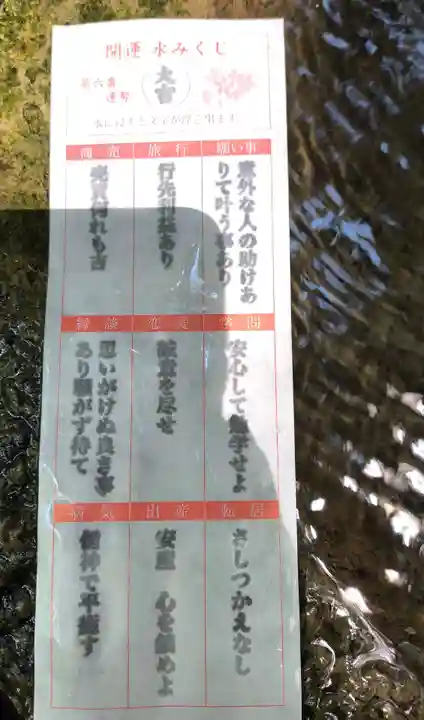 開運 水みくじ
第六番
運勢
大吉
水にはすと文字が浮き出ます。
願い事
意外な人の助けあ
りて叶う事あり
旅行
行先利益あり
商売
売買何れも吉
学問
安心して勉学せよ
恋愛
誠意を尽せ
縁談
思いがけぬ良き事
あり騒がず待て
転居
さしつかえなし
出産
安産 心を鎮めよ
病気
信神で平癒す